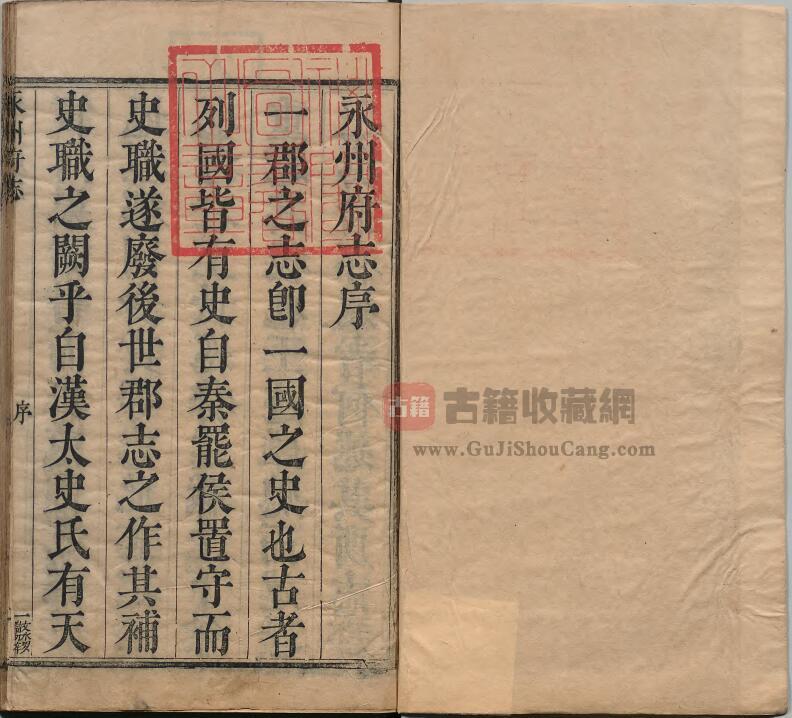 永州府志序
一郡之志卽一國之史也古者
列國皆有史自秦罷侯置守而
史職遂廢後世郡志之作其補
史職之闕乎自漢太史氏有天
永州府志
序
一
古籍
古籍收藏網
www.GuJiShouCang.com